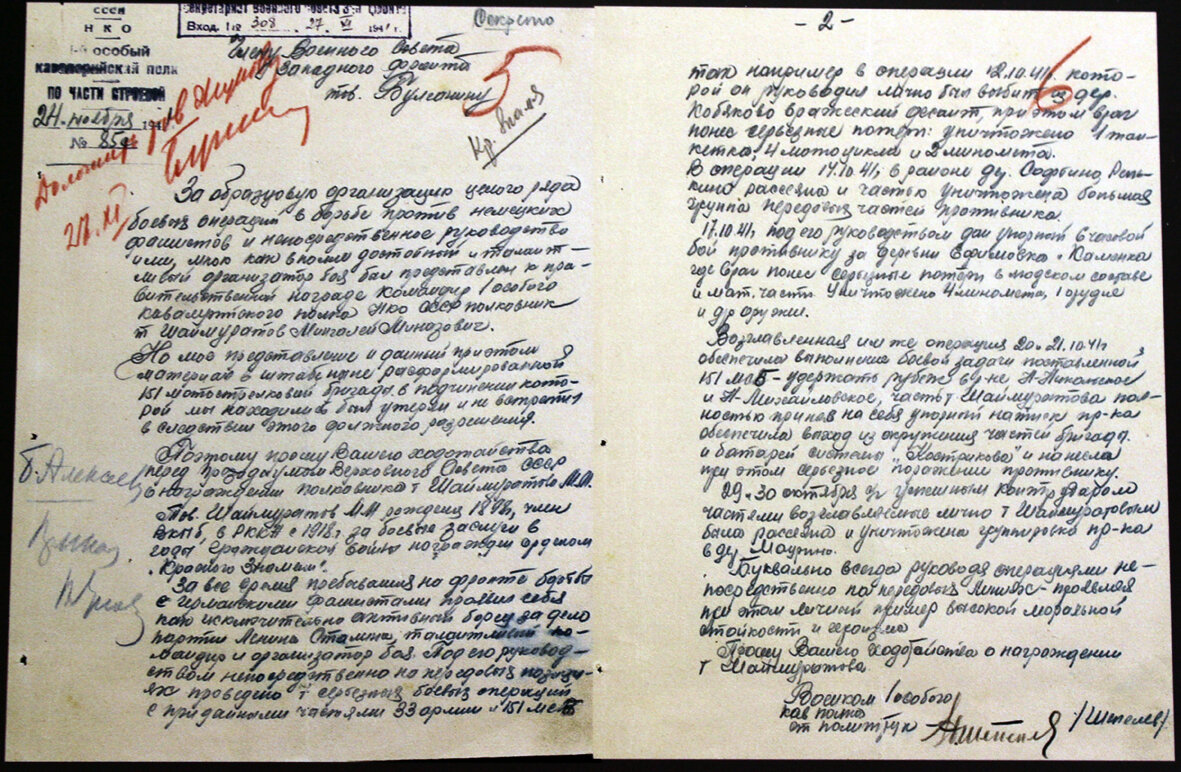 СССР
НКО
1-й особый
кавалерийский полк
ПО ЧАСТИ СТРОЕВОЙ
24 ноября 1941
№
Секретариат Военного Совета Зап. фронта
Вход. № 308 27 XI 1941 г.
Секретно
Члену Военного Совета
Западного фронта
тов. Булганину
5
Кр. знамя
27. XI
За образцовую организацию целого ряда
боевых операций в борьбе против немецких
фашистов и непосредственное руководство
ими, мною как вполне достойный и талант-
ливый организатор боя был представлен к пра-
вительственной награде командир 1 особого
кавалерийского полка НКО СССР полковник
т Шаймуратов Мингалей Миназович.
Но мое представление и данный при этом
материал в штабе ныне расформированной
151 мотострелковой бригады в подчинении кото-
рой мы находимся был утерян и не встретил
в следствии этого должного разрешения.
Поэтому прошу Вашего ходатайства
перед Президиумом Верховного Совета СССР
о награждении полковника т Шаймуратова М.М.
Тов. Шаймуратов М.М рождения 1899г, член
ВКПб, в РККА с 1918г, за боевые заслуги в
годы Гражданской войны награжден орденом
"Красного Знамени".
За все время пребывания на фронте борьбы
с германскими фашистами проявил себя
как исключительно активный борец за дело
партии Ленина Сталина, талантливый ко-
мандир и организатор боя. Под его руковод-
ством непосредственно на передовых позици-
ях проведено 7 серьезных боевых операций
с приданными частями 33 армии и 151 мсб
Б. Алексеев
- 2 -
6
так например в операции 12.10.41г. кото-
рой он руководил лично был выбит из дер.
Кобяково вражеский десант, при этом враг
понес серьезные потери: уничтожено 1 тан-
кетка, 4 мотоцикла и 2 миномета.
В операции 14.10.41г, в районе ду. Софьино, Рень-
кино рассеяна и частью уничтожена большая
группа передовых частей противника.
17.10.41г под его руководством дан упорный 6 часовой
бой противнику за деревни Ефимовка и Каменка
где враг понес серьезные потери в людском составе
и мат. части. Уничтожено 4 миномета, 1 орудие
и др оружие.
Возглавленная им же операция 20-21.10.41г
обеспечила выполнение боевой задачи поставленной
151 мсб - удержать рубеж в р-не Н-Никольское
и Н-Михайловское, часть т Шаймуратова пол-
ностью приняв на себя упорный натиск пр-ка
обеспечила выход из окружения частей бригады
и батарей системы "Кострикова" и нанесла
при этом серьезное поражение противнику.
29-30 октября с/г успешным контрударом
частями возглавляемые лично т Шаймуратовым
была рассеяна и уничтожена группировка пр-ка
в ду. Маурино.
Буквально всегда руководя операциями не-
посредственно на передовых линиях - проявлял
при этом личный пример высокой моральной
стойкости и героизма
Прошу Вашего ходатайства о награждении
т Шаймуратова.
Военком 1 особого
кав полка
ст политрук /Шепелев/